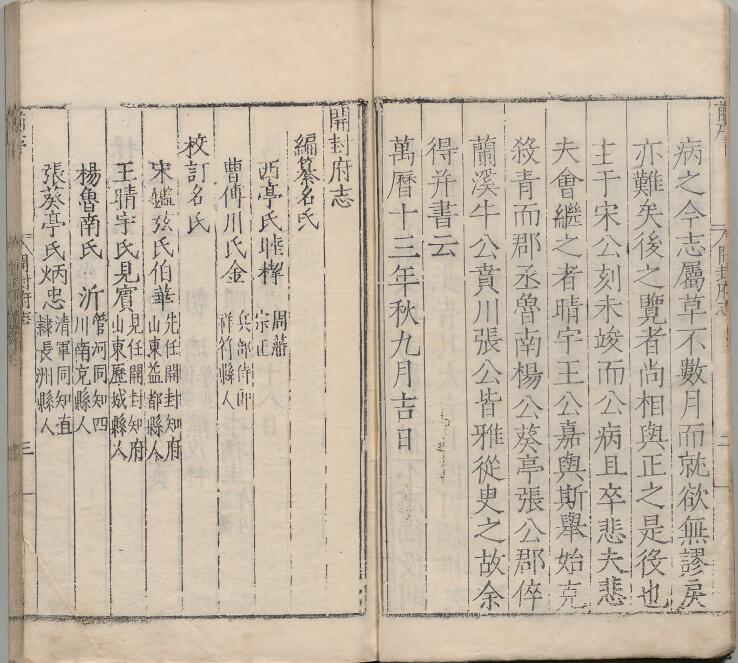 病之今志屬草不數月而就欲無謬戾
亦難矣後之覽者尚相與正之是役也
主于宋公刻未竣而公病且卒悲夫悲
夫會繼之者晴宇王公嘉與斯舉始克
殺青而郡丞魯南楊公葵亭張公郡倅
蘭溪牛公賁川張公皆雅從史之故余
得并書云
萬曆十三年秋九月吉日
開封府志
編纂名氏
西亭氏睦㮮 周藩宗正
曹傅川氏金 兵部侍郎祥符縣人
校訂名氏
宋鑑弦氏伯華 先任開封知府山東益都縣人
王晴宇氏見賓 見任開封知府山東歷城縣人
楊魯南氏沂 管河同知四川南充縣人
張葵亭氏炳忠 清軍同知直隸長洲縣人
開封府志
三